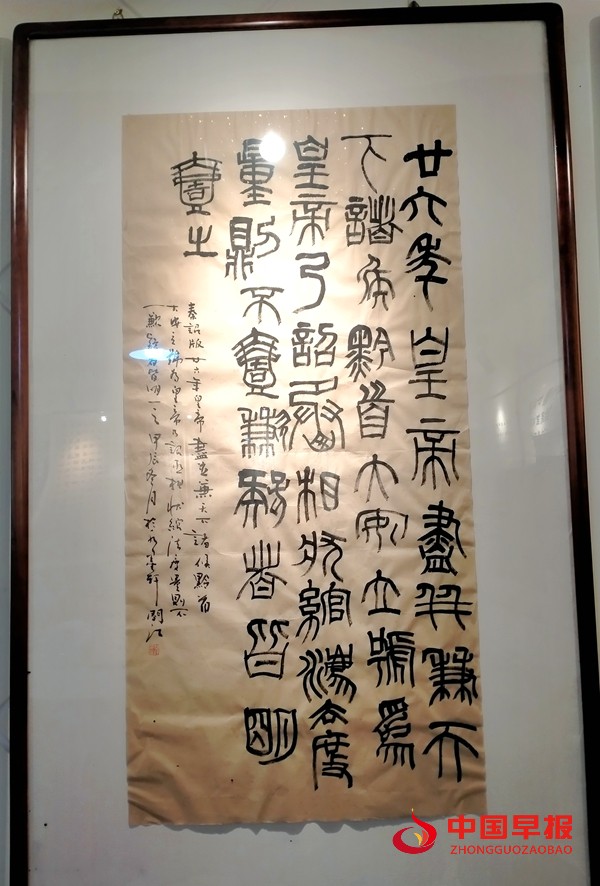 廿六年皇帝盡并兼天
下諸侯黔首大安立號爲
皇帝乃詔丞相狀綰灋度
量則不壹歉疑者皆明
壹之
秦詔版廿六年皇帝盡並兼天下諸侯黔首
大安立號为皇帝乃詔丞相狀綰法度量則不
一歉疑者皆明一之甲辰冬月於軒江
中国早报
ZHONGGUOZAOBAO